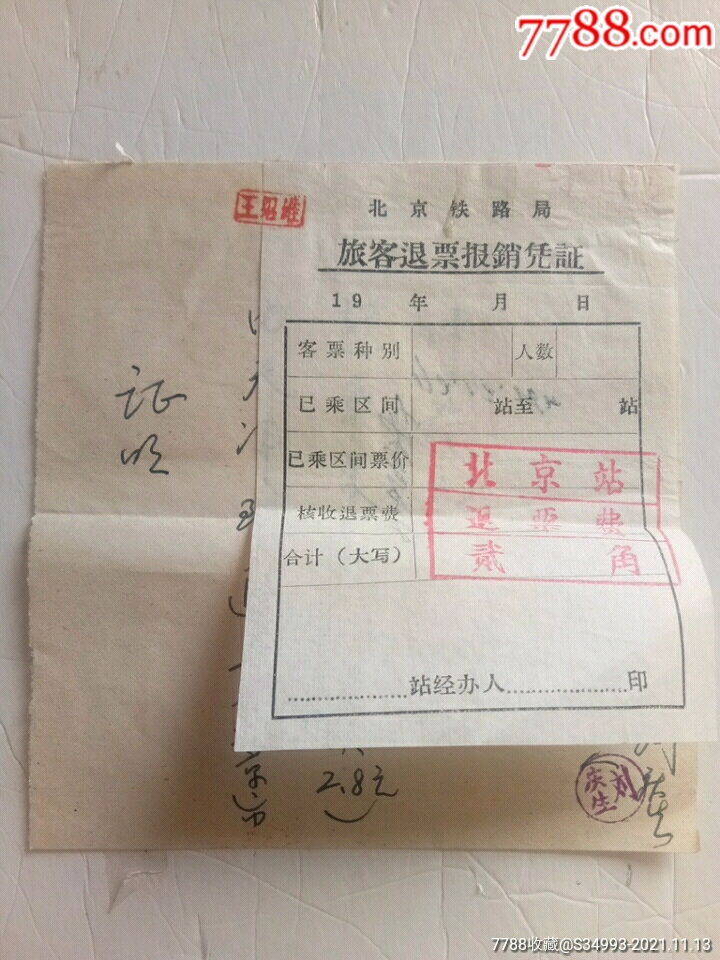 7788.com
王昭維
北京铁路局
旅客退票报銷凭証
19 年 月 日
客票种别 人数
已乘区间 站至 站
已乘区间票价
核收退票费
合计（大写）
北京站
退票费
贰角
站经办人 印
证
明
2.8元
刘庆生
7788收藏@S34993-2021.11.13